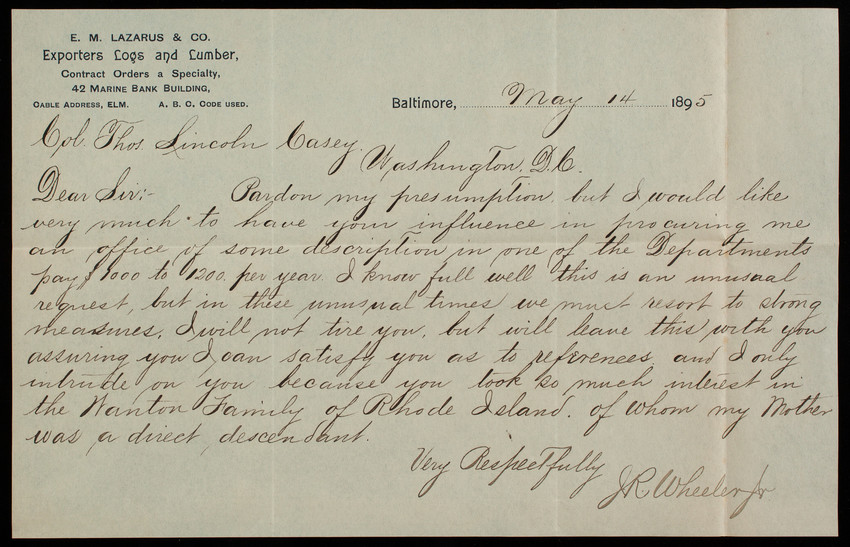 E. M. LAZARUS & CO.
Exporters Logs and Lumber,
Contract Orders a Specialty,
42 MARINE BANK BUILDING,
CABLE ADDRESS, ELM. A. B. C. CODE USED.
Baltimore, May 14 1895
Col. Thos. Lincoln Casey.
Washington, D.C.
Dear Sir:- Pardon my presumption, but I would like
very much to have your influence in procuring me
an office of some description in one of the Departments
pay $1000 to 1200. per year. I know full well this is an unusual
request, but in these unusual times we must resort to strong
measures. I will not tire you, but will leave this with you
assuring you I can satisfy you as to references, and I only
intrude on you because you took so much interest in
the Wanton Family of Rhode Island. of whom my Mother
was a direct descendant.
Very Respectfully
J R Wheeler Jr